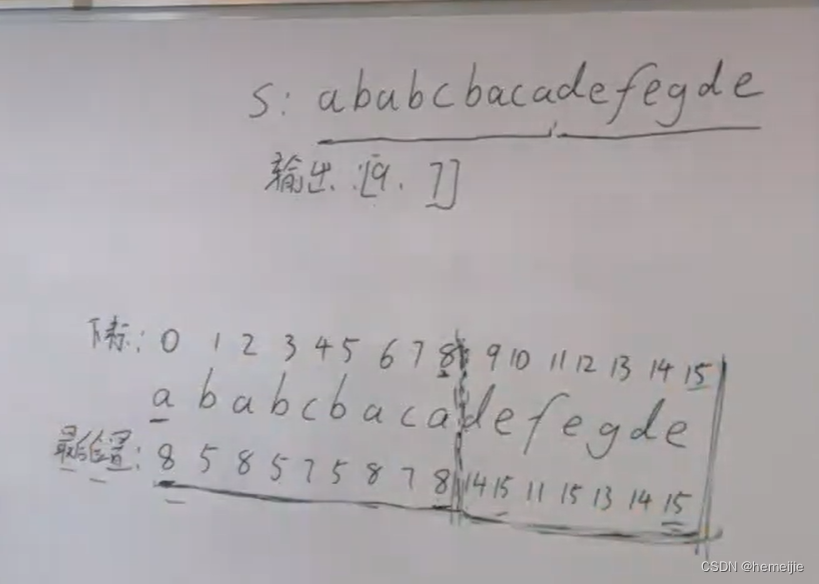 S: ababcbacadefegde
输出:[9, 7]
下标: 0 1 2 3 4 5 6 7 8 9 10 11 12 13 14 15
a b a b c b a c a d e f e g d e
最后位置: 8 5 8 5 7 5 8 7 8 14 15 11 15 13 14 15
CSDN @hemeijie